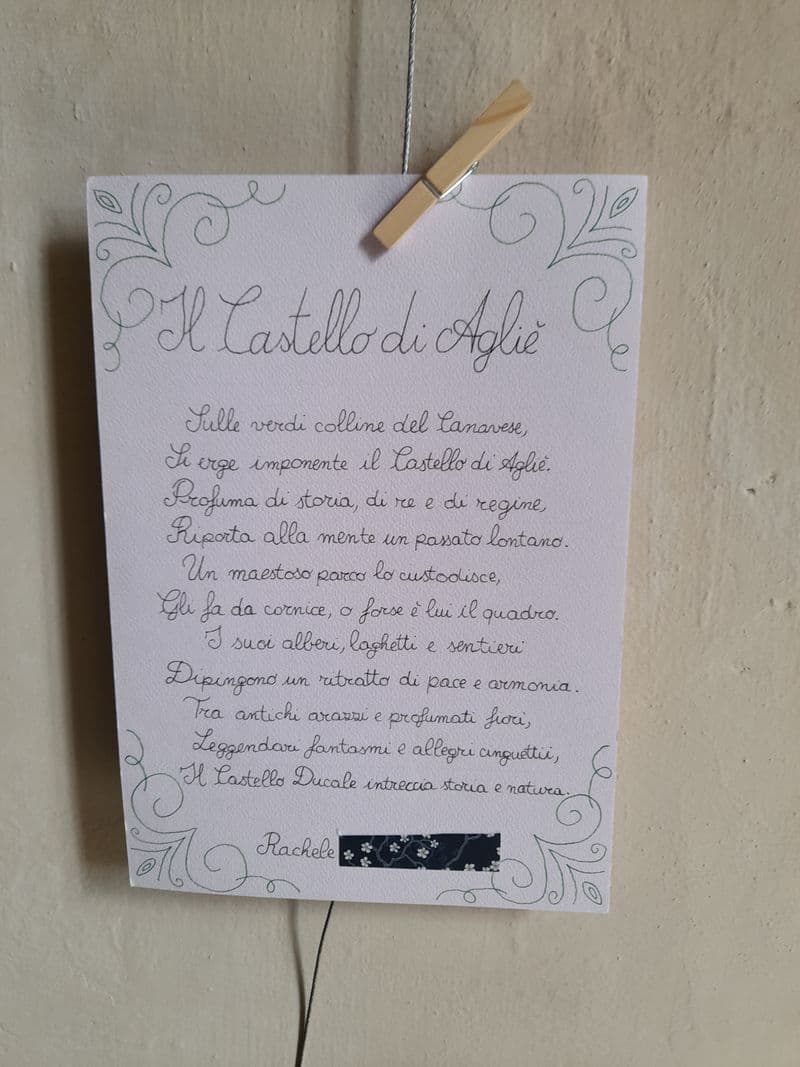 Il Castello di Agliè
Sulle verdi colline del Canavese,
Si erge imponente il Castello di Agliè.
Profuma di storia, di re e di regine,
Riporta alla mente un passato lontano.
Un maestoso parco lo custodisce,
Gli fa da cornice, o forse è lui il quadro.
I suoi alberi, laghetti e sentieri
Dipingono un ritratto di pace e armonia.
Tra antichi arazzi e profumati fiori,
Leggendari fantasmi e allegri cinguettii,
Il Castello Ducale intreccia storia e natura.
Rachele